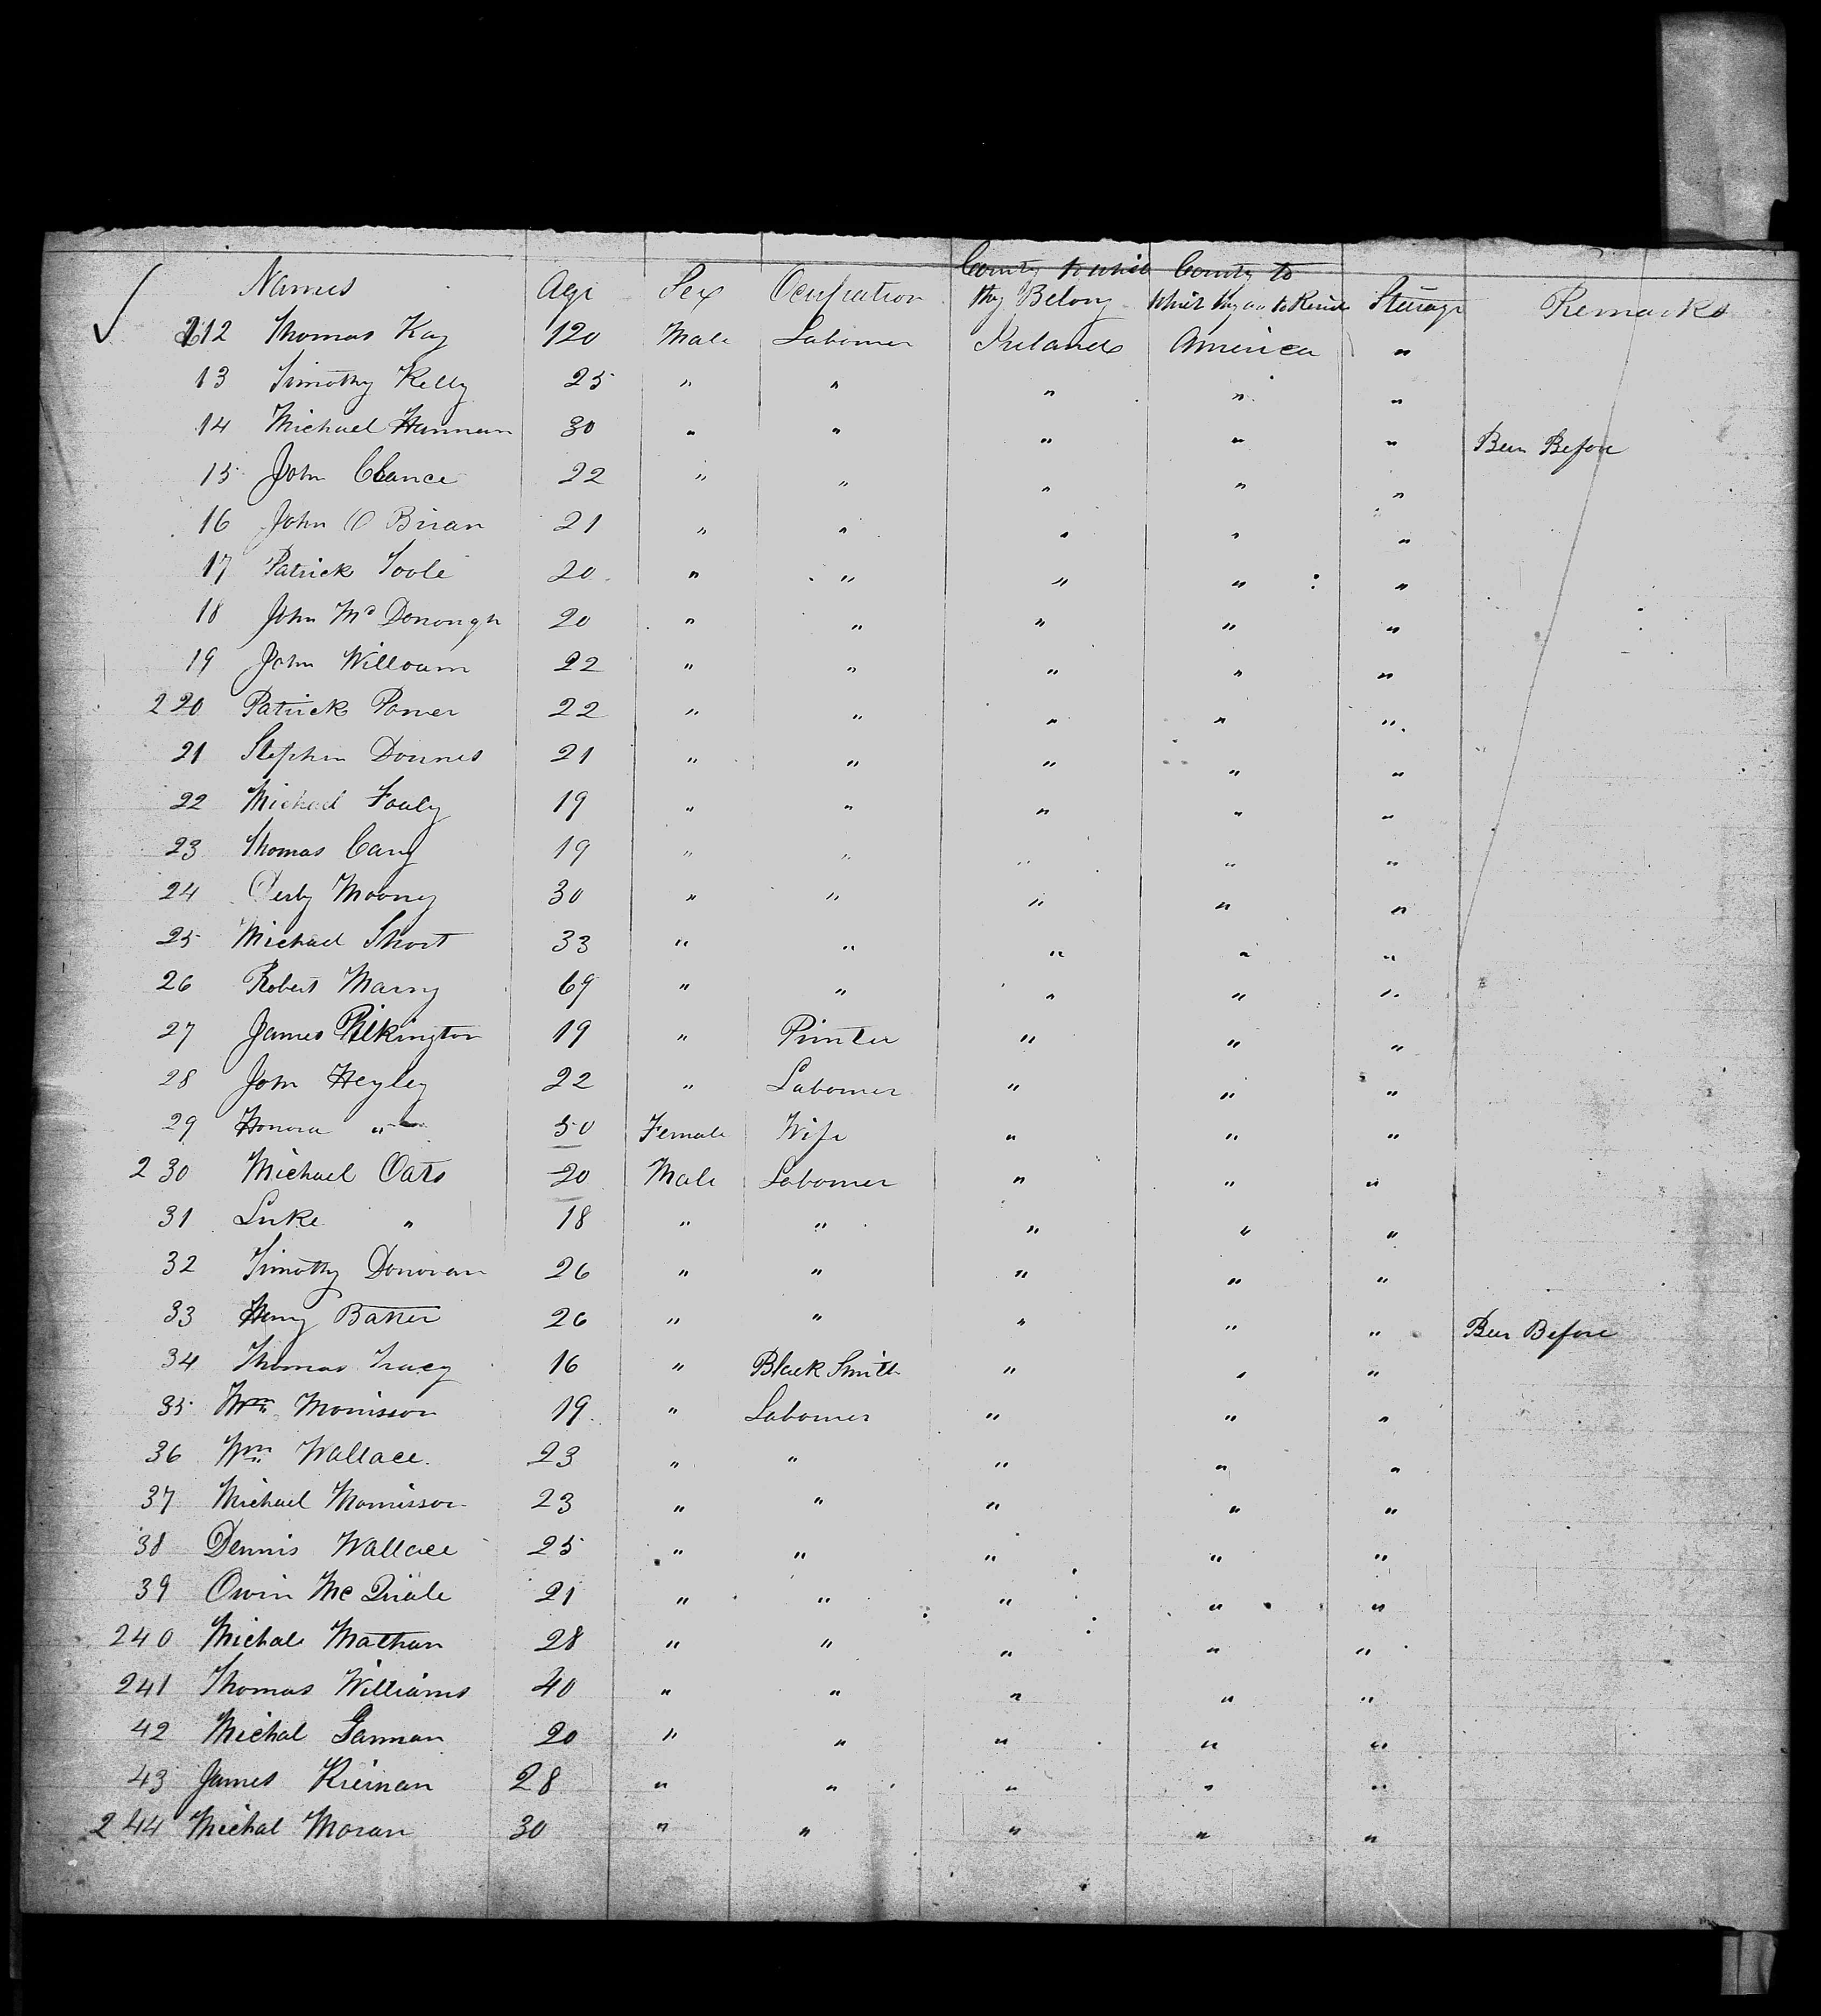 Names Age Sex Ocupation County to which they Belong County to which they are to Reside Sturage Remarks
212 Thomas Kay 120 Male Labourer Ireland America "
13 Timothy Kelly 25 " " " " "
14 Michael Hannan 30 " " " " " Been Before
15 John Clance 22 " " " " "
16 John O Brian 21 " " " " "
17 Patrick Toole 20 " " " " "
18 John Mc Donough 20 " " " " "
19 John William 22 " " " " "
220 Patrick Power 22 " " " " "
21 Stephen Downes 21 " " " " "
22 Michael Fouly 19 " " " " "
23 Thomas Cary 19 " " " " "
24 Derby Mooney 30 " " " " "
25 Michael Short 33 " " " " "
26 Robert 69 " " " " "
27 James Pilkington 19 " Printer " " "
28 John Heyley 22 " Labourer " " "
29 Honora " 50 Female Wife " " "
230 Michael Oats 20 Male Labourer " " "
31 Luke " 18 " " " " "
32 Timothy Donovan 26 " " " " "
33 Henry 26 " " " " " Been Before
34 Thomas Tracy 16 " Black Smith " " "
35 Wm Morrisson 19 " Labourer " " "
36 Wm Wallace 23 " " " " "
37 Michael Morrisson 23 " " " " "
38 Dennis Wallace 25 " " " " "
39 Owin Mc 21 " " " " "
240 Michale 28 " " " " "
241 Thomas Williams 40 " " " " "
42 Michal Gannan 20 " " " " "
43 James Kiernan 28 " " " " "
244 Michal Moran 30 " " " " "